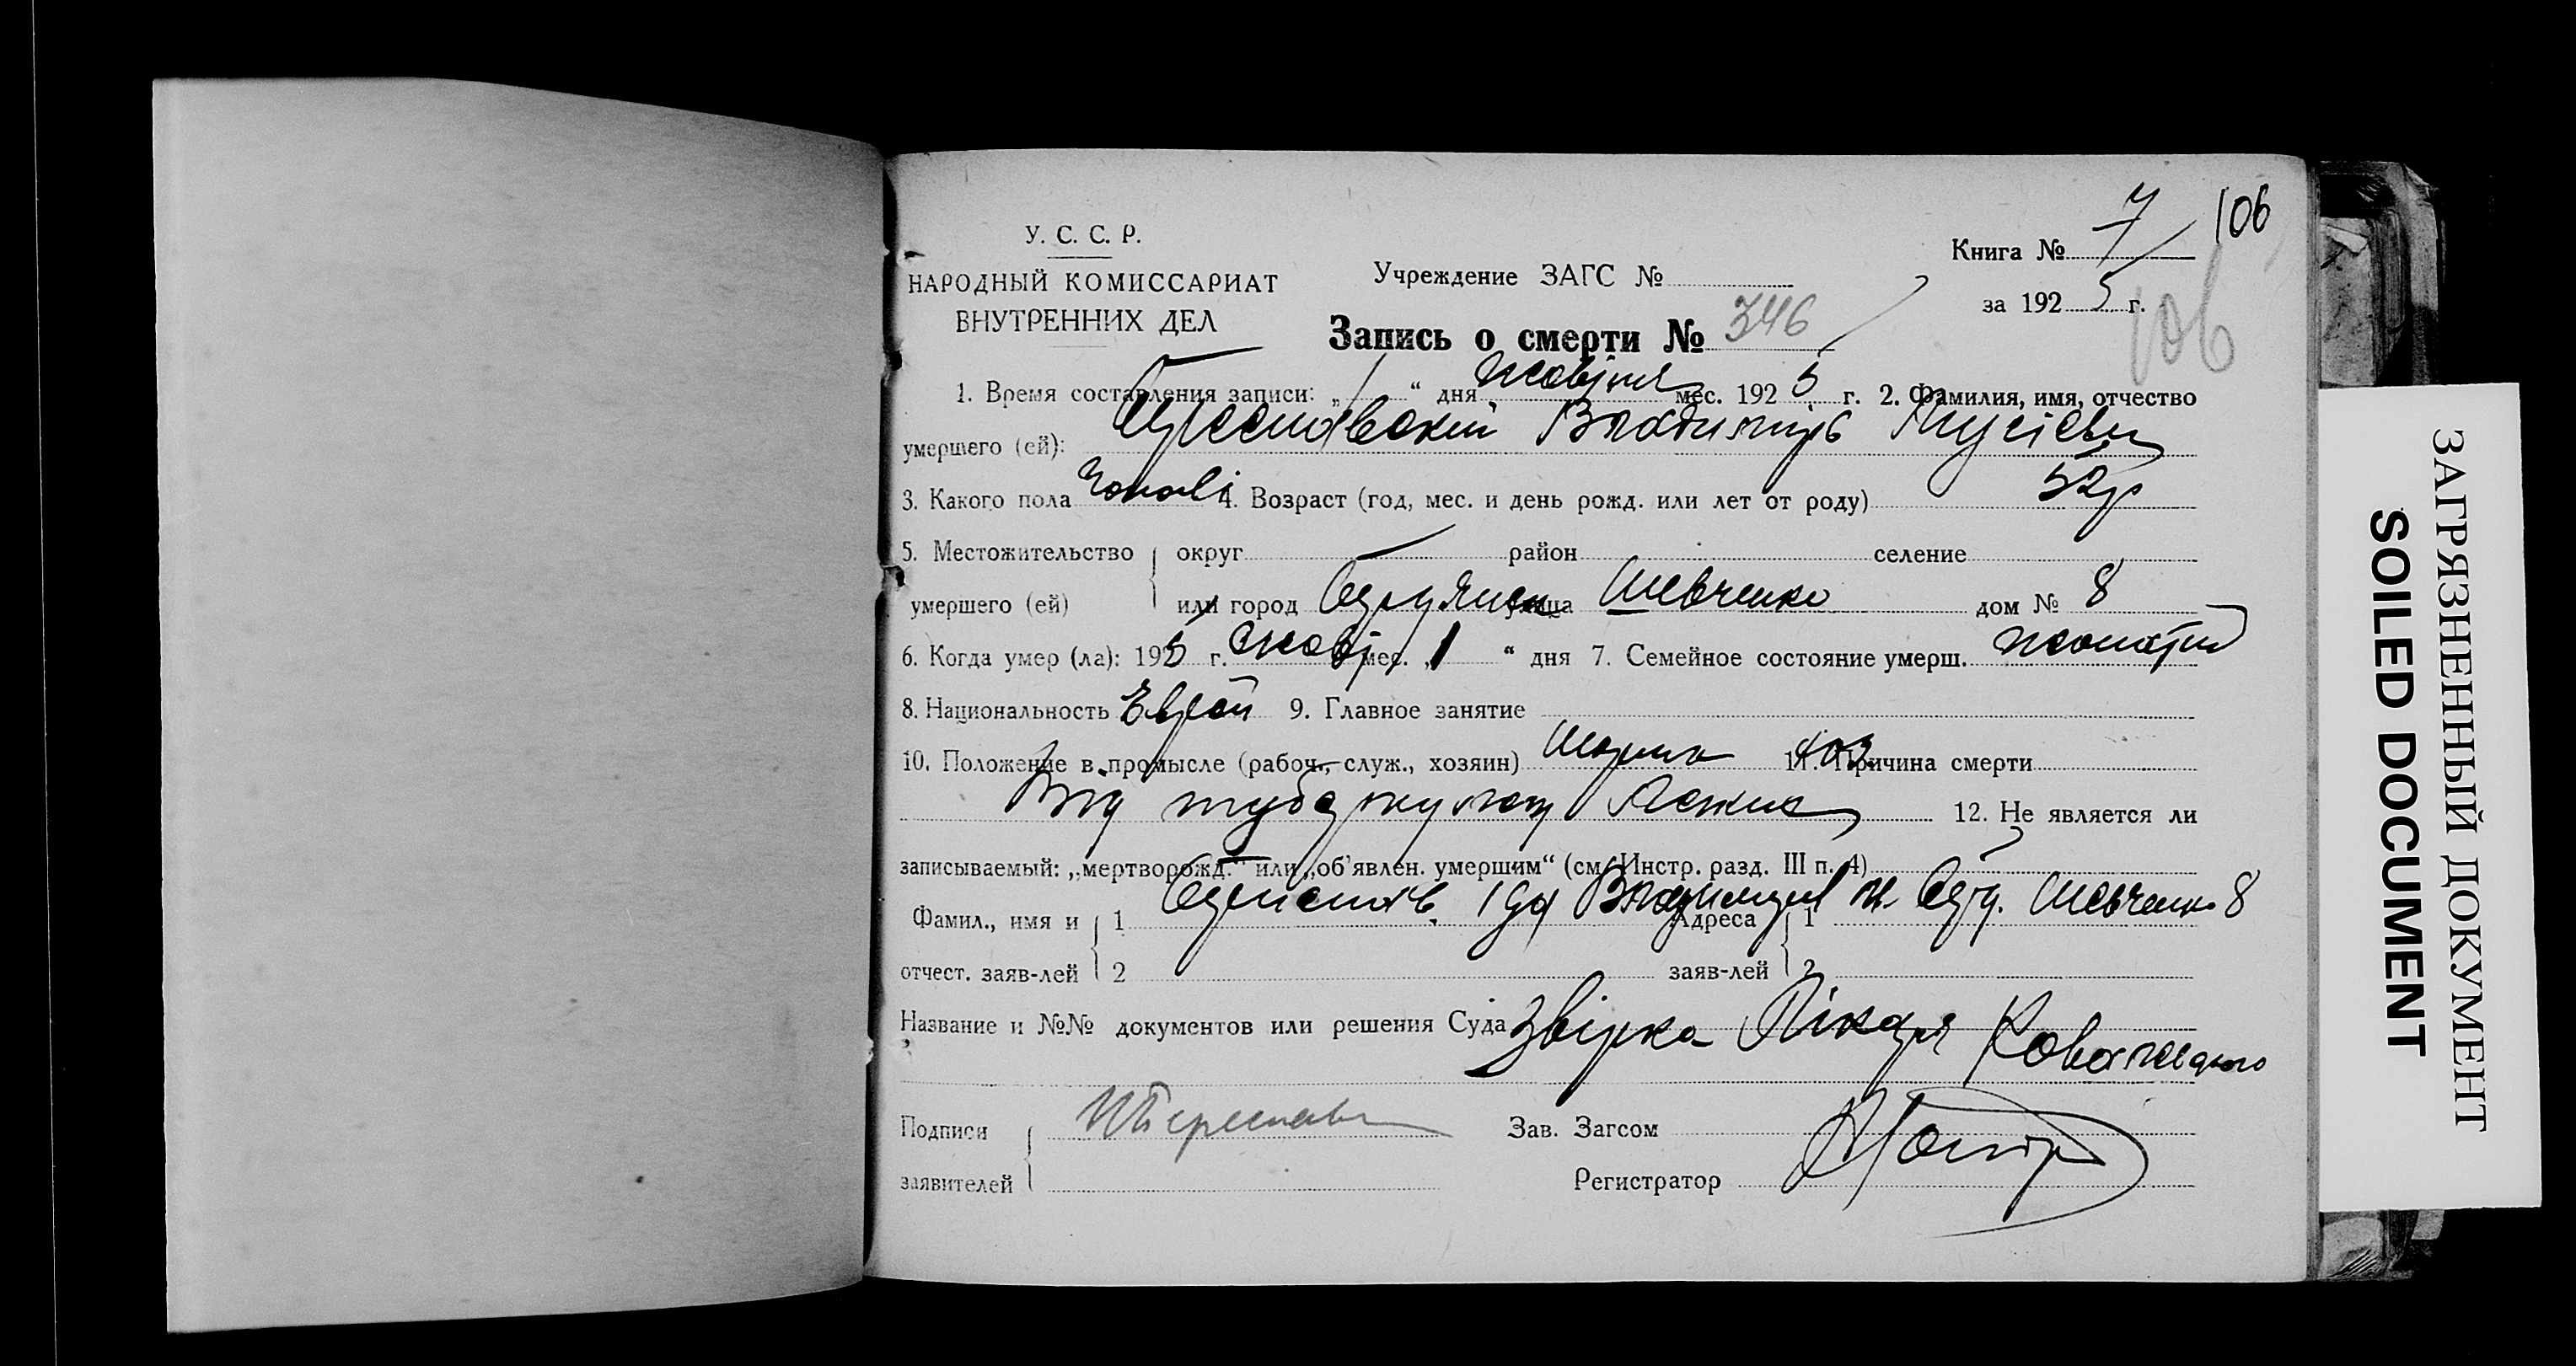 У. С. С. Р.
НАРОДНЫЙ КОМИССАРИАТ
ВНУТРЕННИХ ДЕЛ
Учреждение ЗАГС №
Книга № 7 106
за 1925 г. 106
Запись о смерти № 346
1. Время составления записи: „1“ дня жовтня мес. 1925 г. 2. Фамилия, имя, отчество
умершего (ей): Владимир
3. Какого пола 4. Возраст (год, мес. и день рожд. или лет от роду) 52р
5. Местожительство округ район селение
умершего (ей) или город улица Шевченко дом № 8
6. Когда умер (ла): 1925 г. жовт мес. „1“ дня 7. Семейное состояние умерш. жонатий
8. Национальность Еврей 9. Главное занятие
10. Положение в промысле (рабоч., служ., хозяин) 11. Причина смерти
Від туберкульозу 12. Не является ли
записываемый: „мертворожд.“ или „об'явлен. умершим“ (см. Инстр. разд. III п. 4)
Фамил., имя и 1 Адреса 1 Шевченко 8
отчест. заяв-лей 2 заяв-лей 2
Название и №№ документов или решения Суда Звірка Лікаря
Подписи Зав. Загсом
заявителей Регистратор
ЗАГРЯЗНЕННЫЙ ДОКУМЕНТ
SOILED DOCUMENT